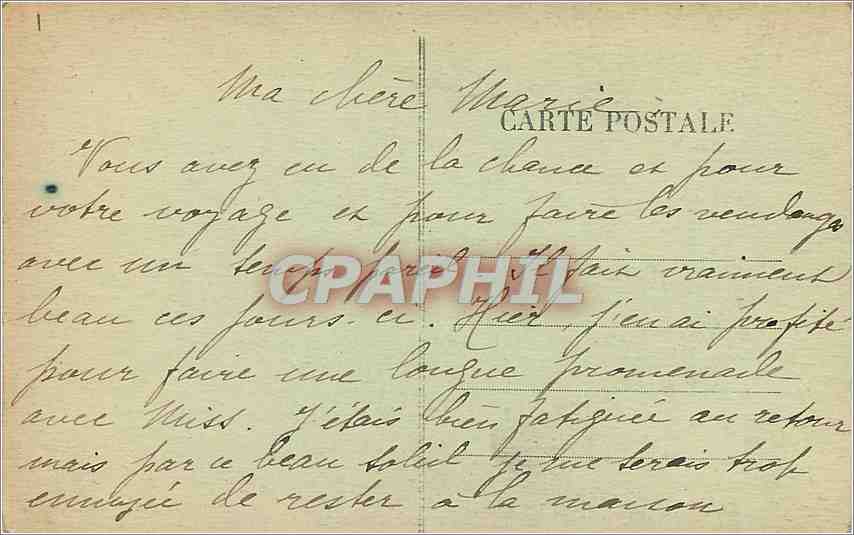 Ma chère Marie,
CARTE POSTALE
Vous avez eu de la chance et pour
votre voyage et pour faire les vendanges
avec un temps pareil. Il fait vraiment
CPAPHIL
beau ces jours-ci. Hier, j'en ai profité
pour faire une longue promenade
avec Miss. J'étais bien fatiguée au retour
mais par ce beau soleil je me serais trop
ennuyée de rester à la maison